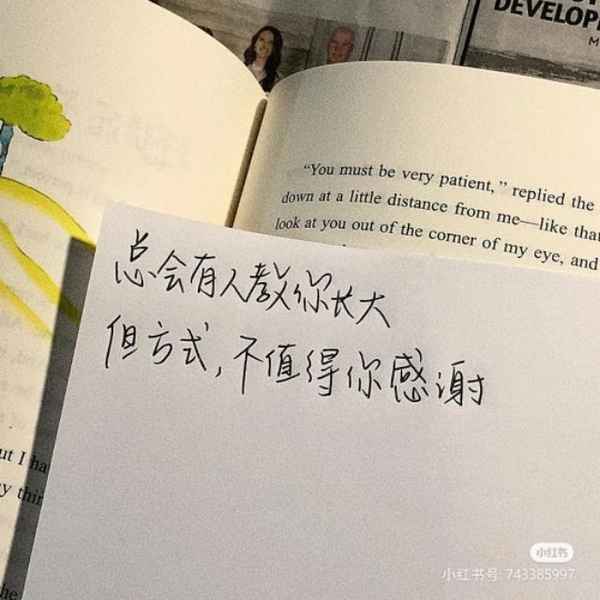 DEVELOP
M
“You must be very patient,” replied the
down at a little distance from me—like that
look at you out of the corner of my eye, and
总会有人教你长大
但方式，不值得你感谢
ut I ha
y thin
the
小红书
小红书号: 743385997